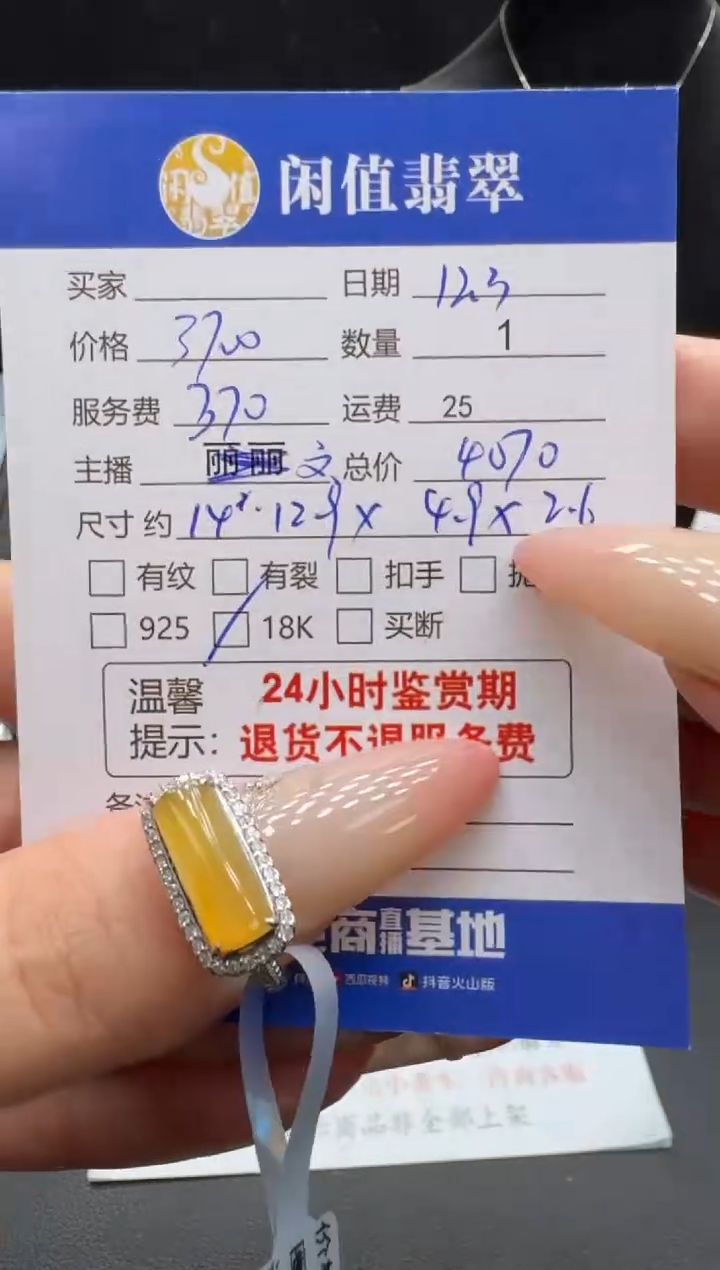 闲值翡翠
买家 日期 12.3
价格 3700 数量 1
服务费 370 运费 25
主播 丽丽 文 总价 4070
尺寸约 14* 12.9 x 4.9 x 2.6
有纹 有裂 扣手
925 18K 买断
温馨 24小时鉴赏期
提示: 退货不退服务费
商直播基地
西瓜视频 抖音火山版
商品非全部上架